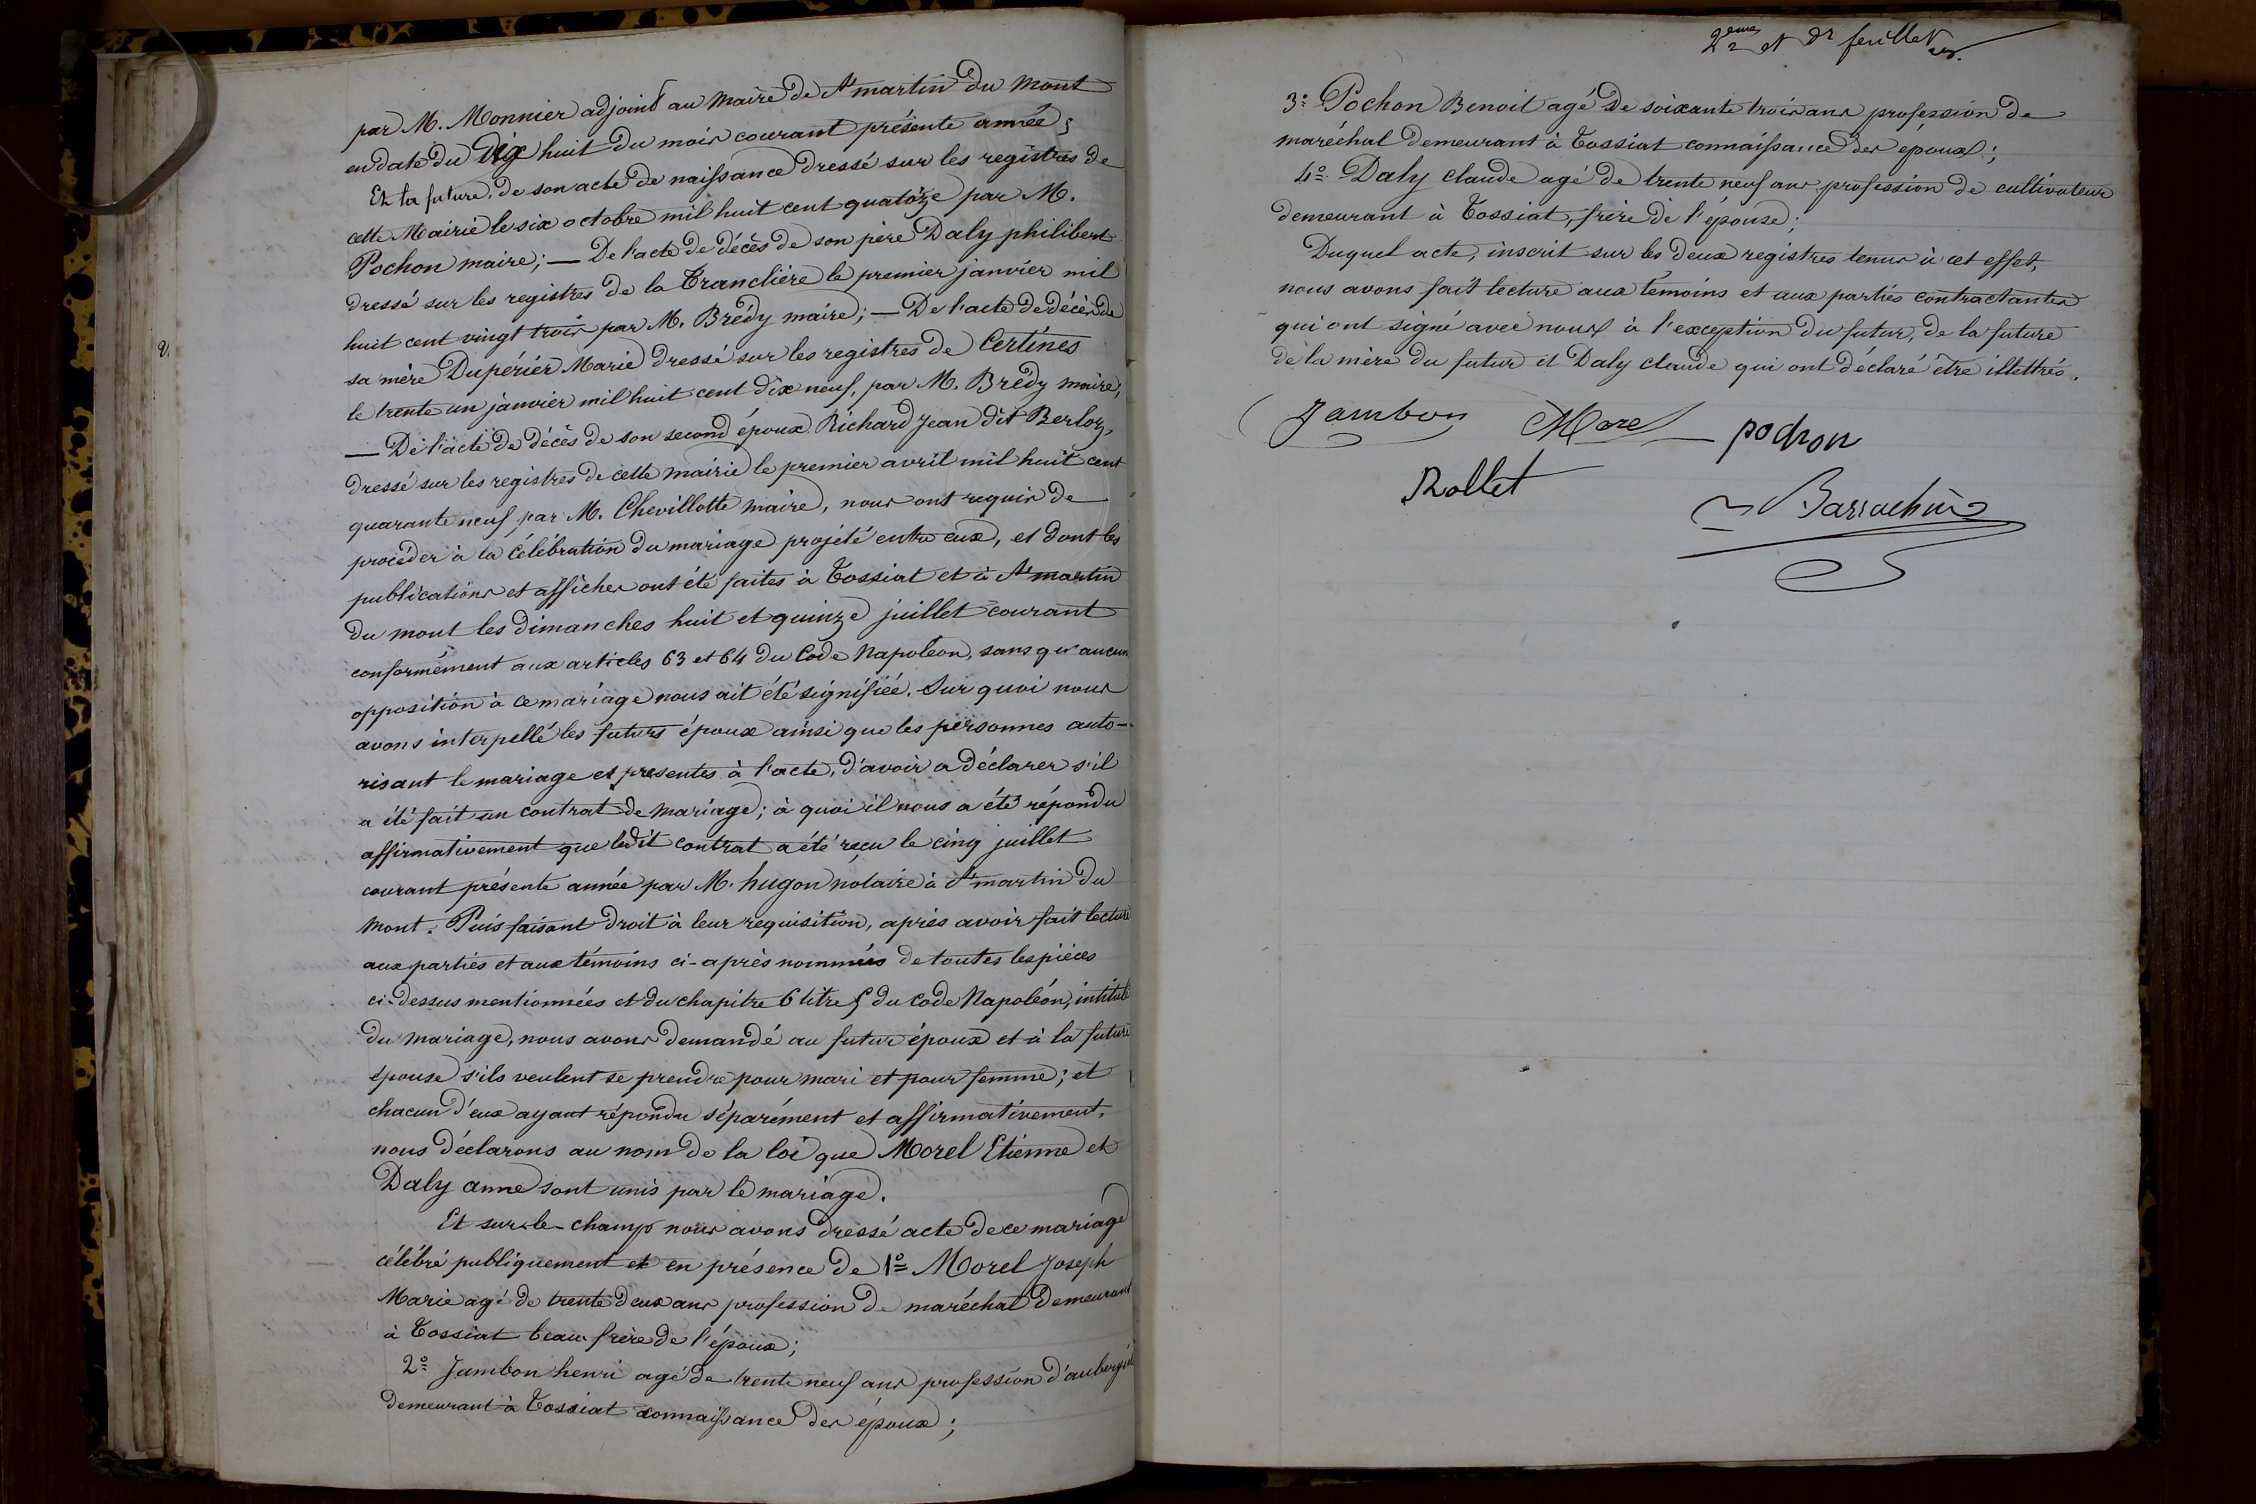 par M. Monnier adjoint au maire de St martin du mont
en date du dix huit du mois courant présente année;
Et la future, de son acte de naissance dressé sur les registres de
cette Mairie le six octobre mil huit cent quatorze par M.
Pochon maire; — De l'acte de décès de son père Daly philibert
dressé sur les registres de la Tranclière le premier janvier mil
huit cent vingt trois par M. Bredy maire; — De l'acte de décès de
sa mère Dupérier Marie dressé sur les registres de Certines
le trente un janvier mil huit cent dix neuf, par M. Bredy maire,
— De l'acte de décès de son second époux Richard Jean dit Berloz,
dressé sur les registres de cette mairie le premier avril mil huit cent
quarante neuf par M. Chevillotte maire, nous ont requis de
procéder à la célébration du mariage projeté entre eux, et dont les
publications et affiches ont été faites à Tossiat et à St martin
du mont les dimanches huit et quinze juillet courant
conformément aux articles 63 et 64 du Code Napoléon, sans qu'aucun
opposition à ce mariage nous ait été signifiée. Sur quoi nous
avons interpellé les futurs époux ainsi que les personnes auto-
risant le mariage et presentes à l'acte, d'avoir a déclarer s'il
a été fait un contrat de mariage; à quoi il nous a été répondu
affirmativement que ledit contrat a été reçu le cinq juillet
courant présente année par M. hugon notaire à St martin du
mont. Puis faisant droit à leur requisition, après avoir fait lecture
aux parties et aux témoins ci-après nommés de toutes les pièces
ci-dessus mentionnées et du chapitre 6 titre 5 du Code Napoléon, intitulé
du mariage, nous avons demandé au futur époux et à la future
épouse s'ils veulent se prendre pour mari et pour femme; et
chacun d'eux ayant répondu séparément et affirmativement,
nous déclarons au nom de la loi que Morel Etienne et
Daly anne sont unis par le mariage.
Et sur-le-champ nous avons dressé acte de ce mariage
célébré publiquement et en présence de 1o Morel Joseph
Marie agé de trente deux ans profession de maréchal demeurant
à Tossiat beau frère de l'époux;
2o Jambon henri agé de trente neuf ans profession d'aubergiste
demeurant à Tossiat connaissance des époux;
2eme et dr feuillet
3o Pochon Benoit agé de soixante trois ans profession de
maréchal demeurant à Tossiat connaissance des époux;
4o Daly claude agé de trente neuf ans profession de cultivateur
demeurant à Tossiat, frère de l'épouse;
Duquel acte, inscrit sur les deux registres tenus à cet effet,
nous avons fait lecture aux témoins et aux parties contractantes
qui ont signé avec nous à l'exception du futur, de la future
de la mère du futur et Daly claude qui ont déclaré être illettrés.
Jambon Morel pochon
Rollet
Barrachin